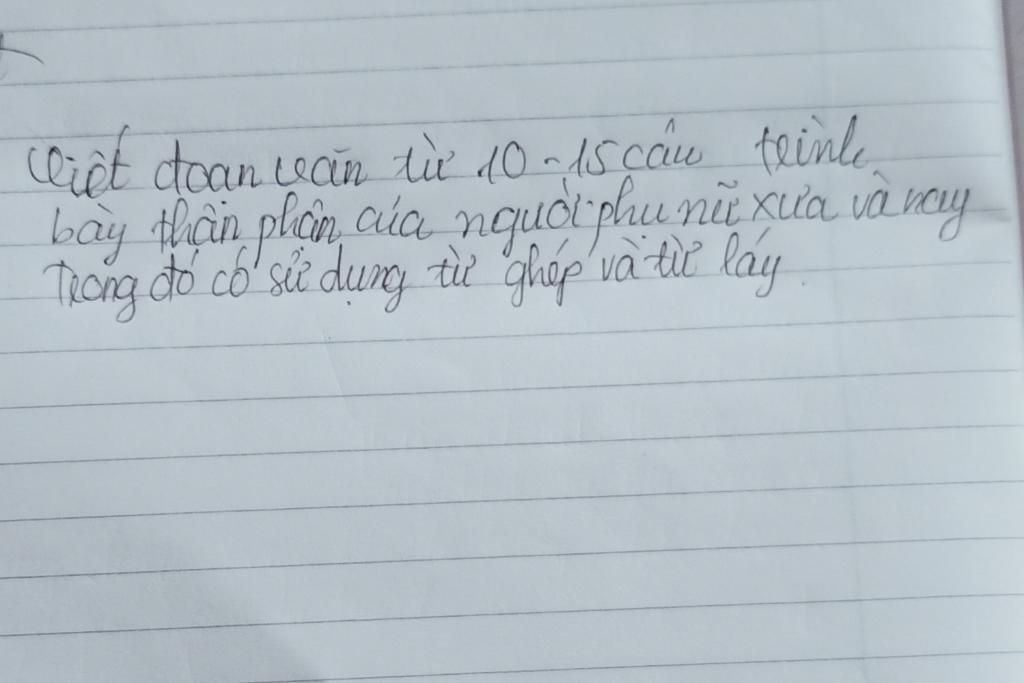 Viết đoạn văn từ 10-15 câu trình
bày thận phận của người phụ nữ xưa và nay
Trong đó có sử dụng từ ghép và từ láy.